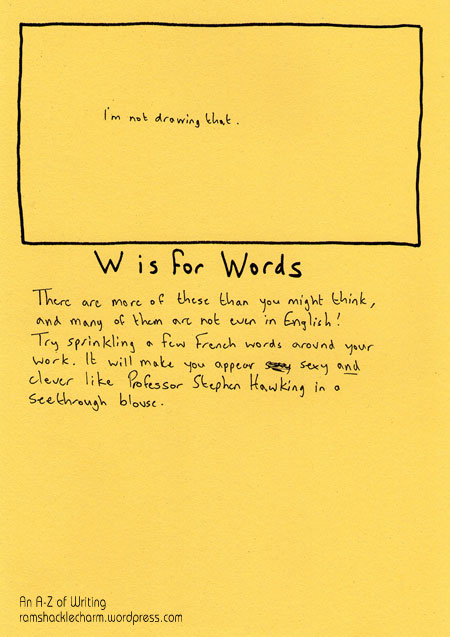 I'm not drawing that.
W is for Words
There are more of these than you might think,
and many of them are not even in English!
Try sprinkling a few French words around your
work. It will make you appear sexy and
clever like Professor Stephen Hawking in a
seethrough blouse.
An A-Z of Writing
ramshacklecharm.wordpress.com